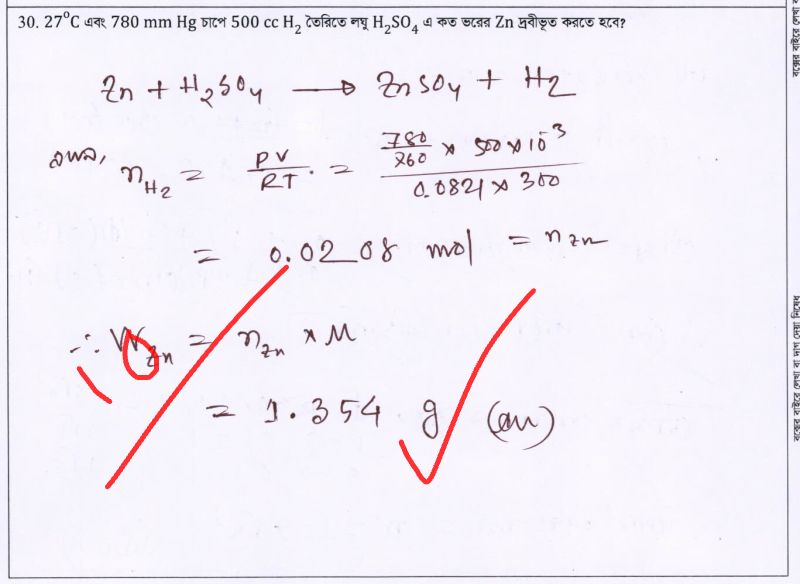 30. 27°C এবং 780 mm Hg চাপে 500 cc H₂ তৈরিতে লঘু H₂SO₄ এ কত ভরের Zn দ্রবীভূত করতে হবে?
Zn + H₂SO₄ ⟶ ZnSO₄ + H₂
n_H₂ = PV/RT = (780/760 × 500 × 10⁻³)/(0.0821 × 300)
= 0.0208 mol = n_Zn
∴ W_Zn = n_Zn × M
= 1.354 g (Ans)
10
বক্সের বাইরে লেখা বা দাগ দেয়া নিষেধ